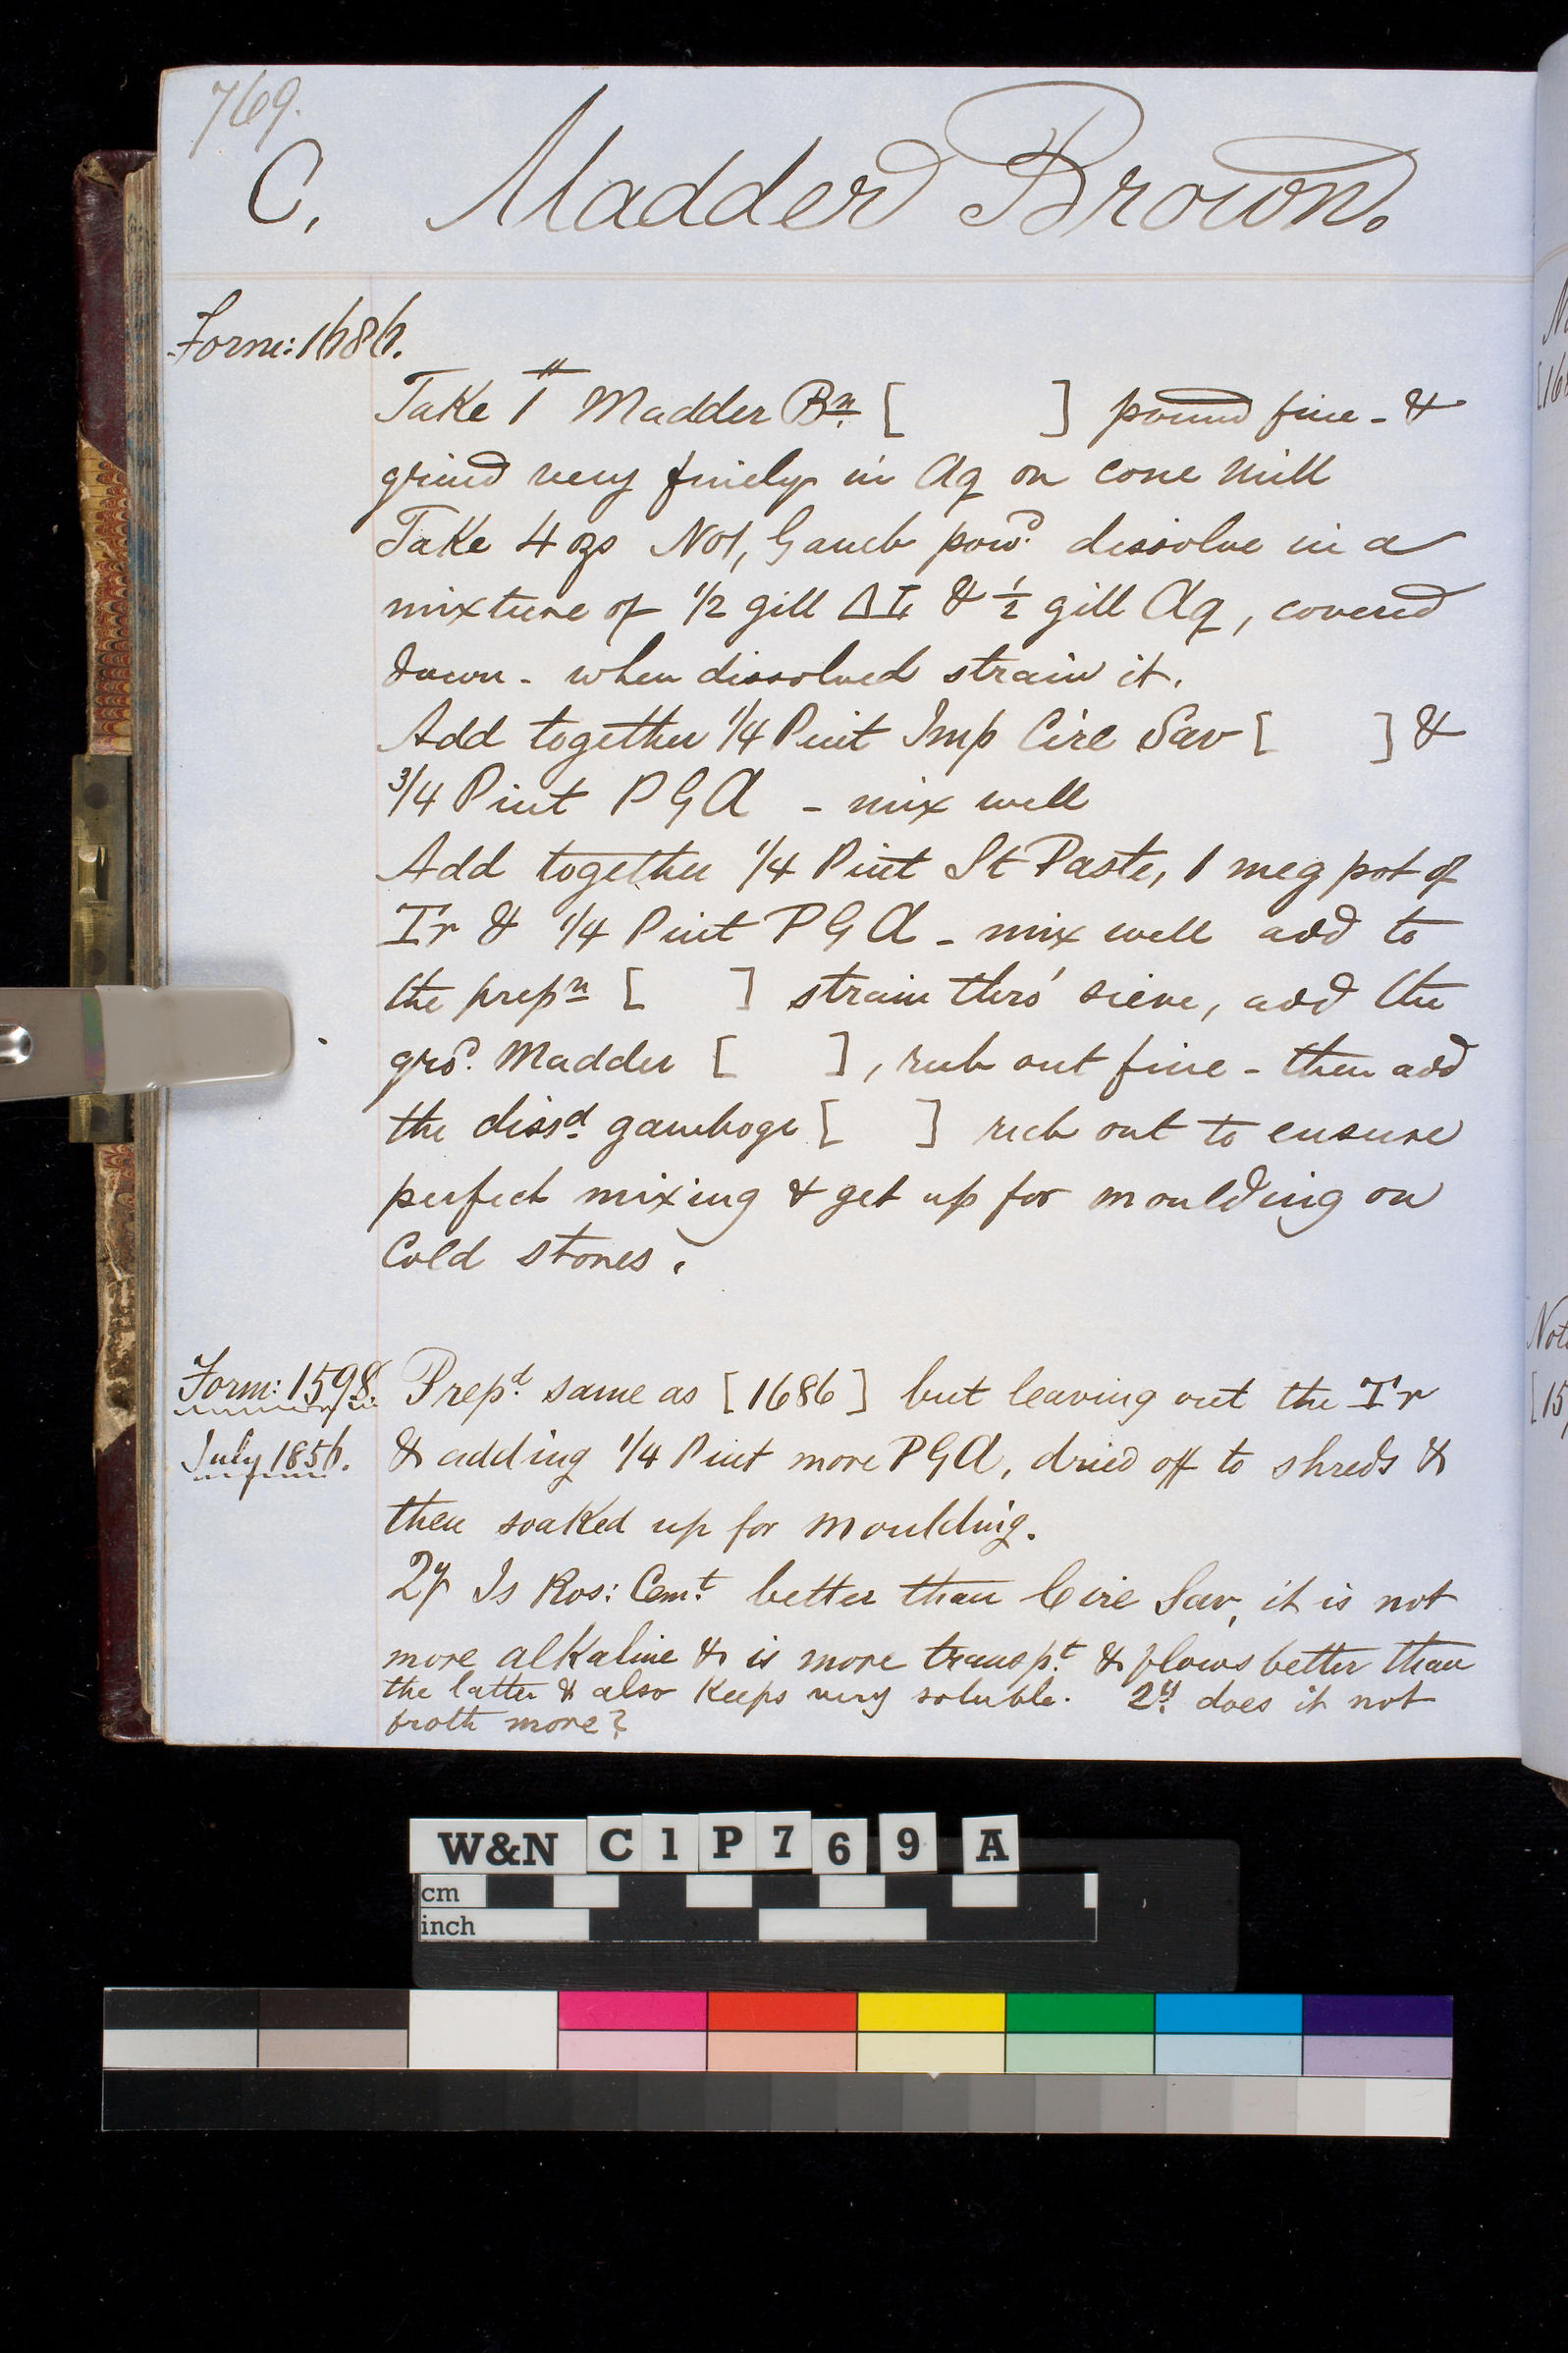 769.
C, Madder Brown.
Form: 1686.
Take 1 # Madder Bn [ ] pound fine - &
grind very finely in Aq on cone mill
Take 4 ozs No1, Gamb powd dissolve in a
mixture of 1/2 gill & 1/2 gill Aq, covered
down - when dissolved strain it.
Add together 1/4 Pint Imp Cire Sav [ ] &
3/4 Pint P G A - mix well
Add together 1/4 Pint St Paste, 1 meg pot of
Tr & 1/4 Pint P G A - mix well add to
the prepn [ ] strain thro' sieve, add the
grd. Madder [ ], rub out fine - then add
the dissd gamboge [ ] rub out to ensure
perfect mixing & get up for moulding on
Cold stones.
Form: 1598.
Prepd. same as [1686] but leaving out the Tr
July 1856.
& adding 1/4 Pint more P G A, dried off to shreds &
then soaked up for moulding.
Qy Is Ros: Cemt. better than Cire Sav, it is not
more alkaline & is more transpt. & flows better than
the latter & also keeps very soluble. 2y. does it not
froth more?
[16
Not
[15
W&N C1P769 A
cm
inch